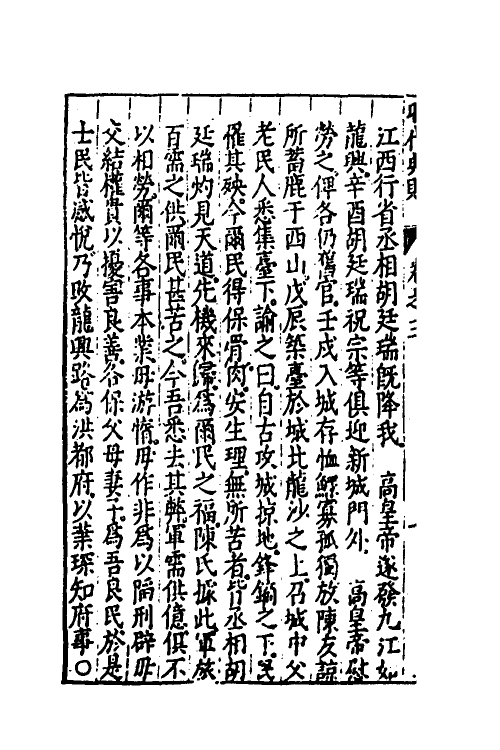 江西行省丞相胡廷瑞既降我 高皇帝遂發九江如
龍興辛酉胡廷瑞祝宗等俱迎新城門外 高皇帝慰
勞之俾各仍舊官壬戌入城存恤鰥寡孤獨放陳友諒
所蓄鹿于西山戊辰築臺於城北龍沙之上召城中父
老民人悉集臺下諭之曰自古攻城掠地鋒鏑之下民
罹其殃今爾民得保骨肉安生理無所苦者皆丞相胡
廷瑞灼見天道先機來歸為爾民之福陳氏據此軍旅
百需之供爾民甚苦之今吾悉去其弊軍需供億俱不
以相勞爾等各事本業毋游惰毋作非為以陷刑辟毋
交結權貴以擾害良善各保父母妻子為吾良民於是
士民皆感悅乃改龍興路為洪都府以葉琛知府事○